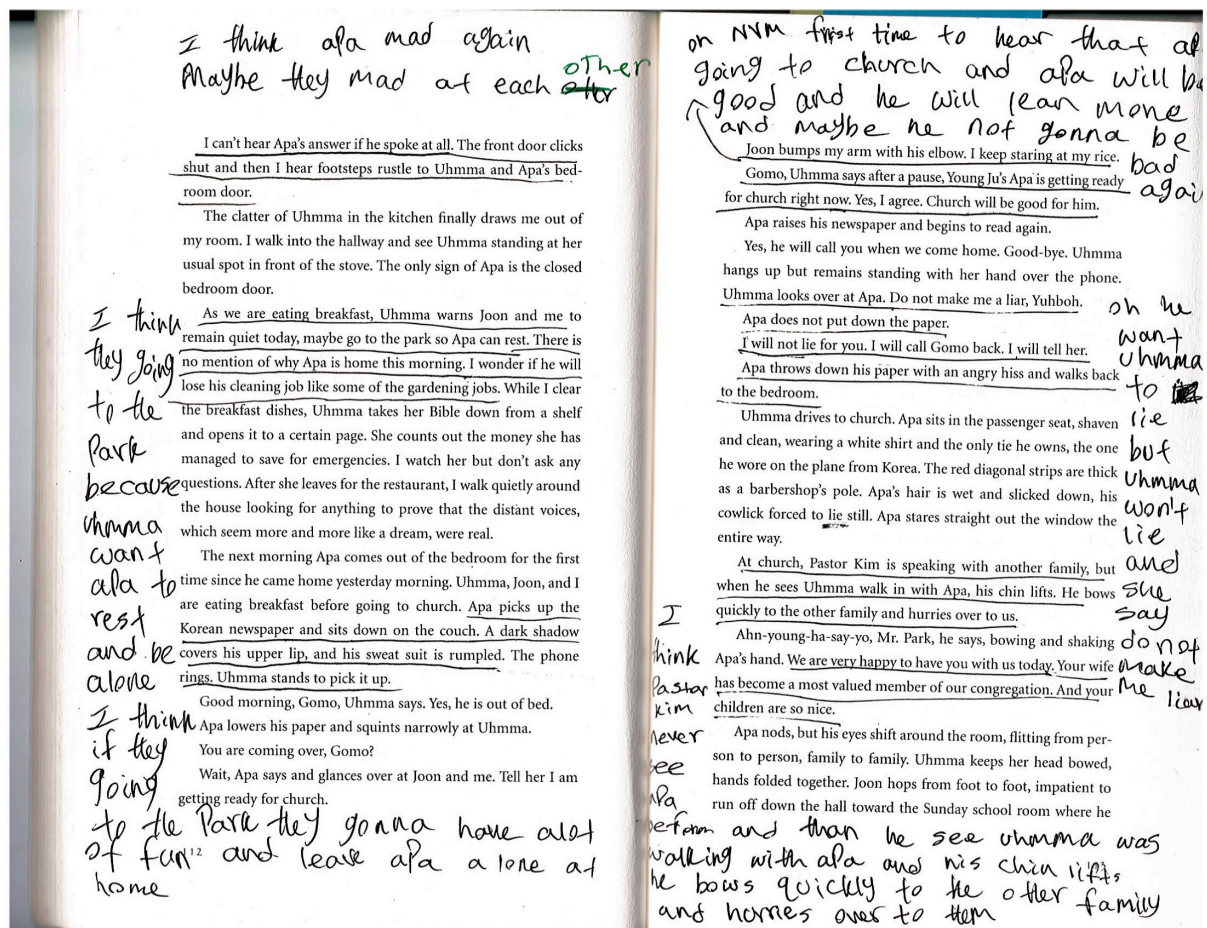 I think apa mad again
Maybe they mad at each other
I can't hear Apa's answer if he spoke at all. The front door clicks
shut and then I hear footsteps rustle to Uhmma and Apa's bed-
room door.
The clatter of Uhmma in the kitchen finally draws me out of
my room. I walk into the hallway and see Uhmma standing at her
usual spot in front of the stove. The only sign of Apa is the closed
bedroom door.
As we are eating breakfast, Uhmma warns Joon and me to
remain quiet today, maybe go to the park so Apa can rest. There is
no mention of why Apa is home this morning. I wonder if he will
lose his cleaning job like some of the gardening jobs. While I clear
the breakfast dishes, Uhmma takes her Bible down from a shelf
and opens it to a certain page. She counts out the money she has
managed to save for emergencies. I watch her but don't ask any
questions. After she leaves for the restaurant, I walk quietly around
the house looking for anything to prove that the distant voices,
which seem more and more like a dream, were real.
The next morning Apa comes out of the bedroom for the first
time since he came home yesterday morning. Uhmma, Joon, and I
are eating breakfast before going to church. Apa picks up the
Korean newspaper and sits down on the couch. A dark shadow
covers his upper lip, and his sweat suit is rumpled. The phone
rings. Uhmma stands to pick it up.
Good morning, Gomo, Uhmma says. Yes, he is out of bed.
Apa lowers his paper and squints narrowly at Uhmma.
You are coming over, Gomo?
Wait, Apa says and glances over at Joon and me. Tell her I am
getting ready for church.
I think
they going
to the
Park
because
uhmma
want
apa to
rest
and be
alone
I think
if they
going
to the Park they gonna have alot
of fun and leave apa a lone at
home
oh NVM first time to hear that ap
going to church and apa will be
good and he will lean more
and maybe he not gonna be
bad
again
Joon bumps my arm with his elbow. I keep staring at my rice.
Gomo, Uhmma says after a pause, Young Ju's Apa is getting ready
for church right now. Yes, I agree. Church will be good for him.
Apa raises his newspaper and begins to read again.
Yes, he will call you when we come home. Good-bye. Uhmma
hangs up but remains standing with her hand over the phone.
Uhmma looks over at Apa. Do not make me a liar, Yuhboh.
Apa does not put down the paper.
I will not lie for you. I will call Gomo back. I will tell her.
Apa throws down his paper with an angry hiss and walks back
to the bedroom.
Uhmma drives to church. Apa sits in the passenger seat, shaven
and clean, wearing a white shirt and the only tie he owns, the one
he wore on the plane from Korea. The red diagonal strips are thick
as a barbershop's pole. Apa's hair is wet and slicked down, his
cowlick forced to lie still. Apa stares straight out the window the
entire way.
At church, Pastor Kim is speaking with another family, but
when he sees Uhmma walk in with Apa, his chin lifts. He bows
quickly to the other family and hurries over to us.
Ahn-young-ha-say-yo, Mr. Park, he says, bowing and shaking
Apa's hand. We are very happy to have you with us today. Your wife
has become a most valued member of our congregation. And your
children are so nice.
Apa nods, but his eyes shift around the room, flitting from per-
son to person, family to family. Uhmma keeps her head bowed,
hands folded together. Joon hops from foot to foot, impatient to
run off down the hall toward the Sunday school room where he
oh he
want
uhmma
to
lie
but
uhmma
won't
lie
and
she
say
do not
make
me liar
I
think
Pastor
kim
never
see
apa
before and than he see uhmma was
walking with apa and his chin lifts
he bows quickly to the other family
and horries over to them